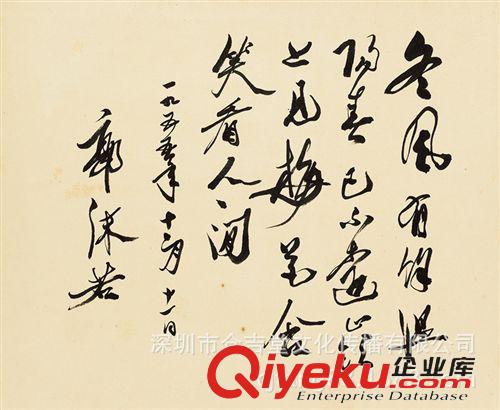 冬風有餘温
陽春已不遠
上見梅花含
笑看人间
一九五五年十二月十一日
郭沫若
深圳市吉堂文化传播有限公司
Qiyeku.com 企业库
Enterprise Database